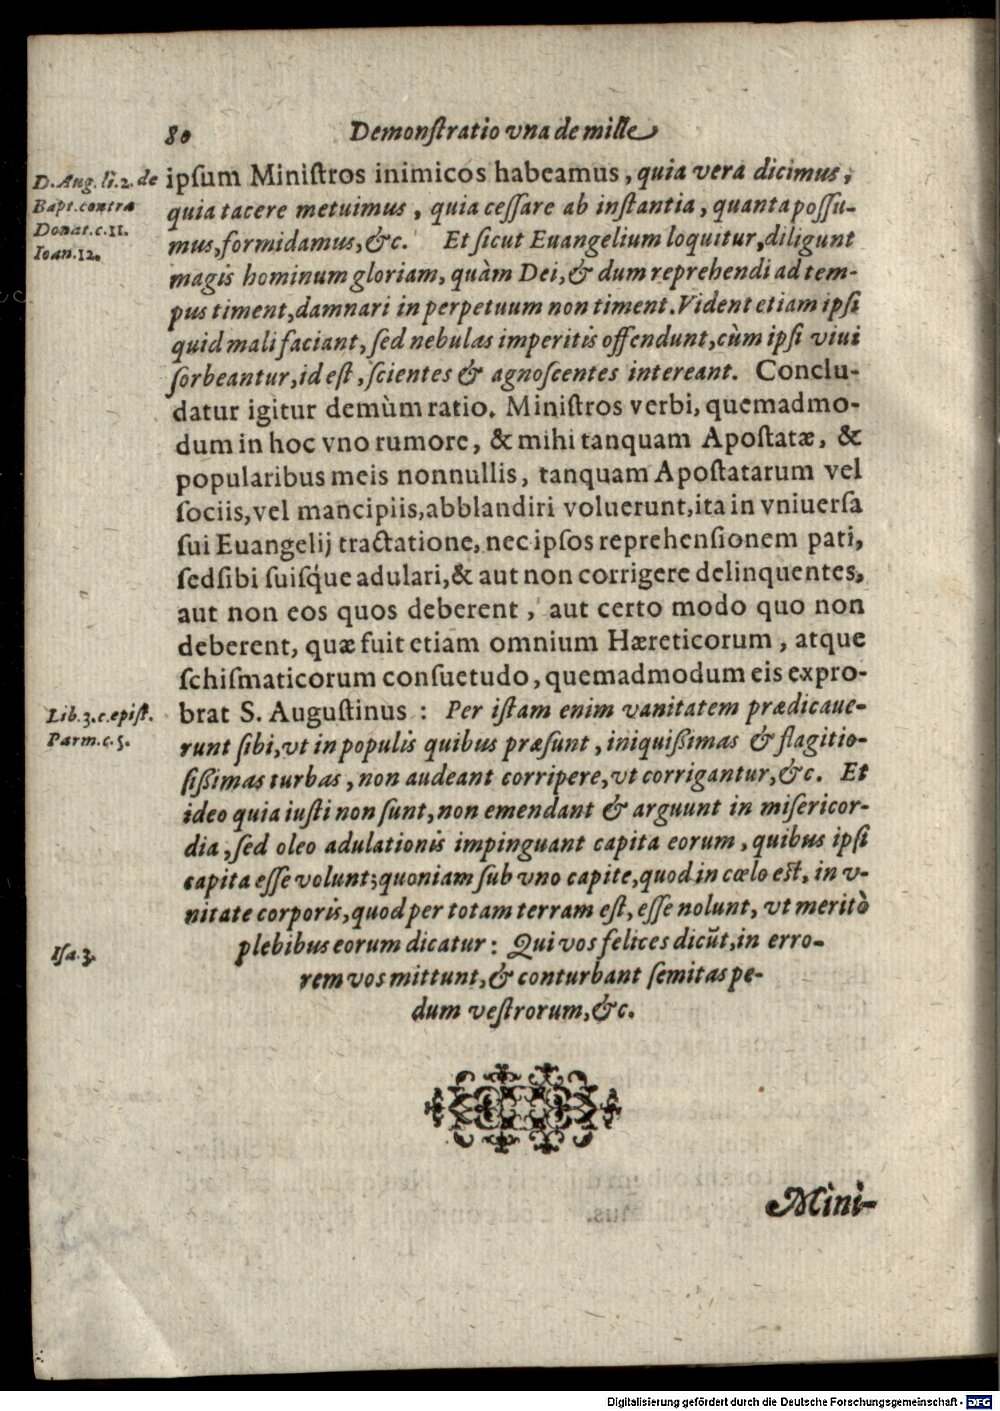 80 Demonſtratio vna de mille
D. Aug. li. 2. de
Bapt. contra
Donat. c. 11.
Ioan. 12.
ipſum Miniſtros inimicos habeamus, quia vera dicimus,
quia tacere metuimus, quia ceſſare ab inſtantia, quanta poſſu-
mus, formidamus, &c. Et ſicut Euangelium loquitur, diligunt
magis hominum gloriam, quàm Dei, & dum reprehendi ad tem-
pus timent, damnari in perpetuum non timent. Vident etiam ipſi
quid mali faciant, ſed nebulas imperitis offendunt, cùm ipſi viui
ſorbeantur, id eſt, ſcientes & agnoſcentes intereant. Conclu-
datur igitur demùm ratio. Miniſtros verbi, quemadmo-
dum in hoc vno rumore, & mihi tanquam Apoſtatæ, &
popularibus meis nonnullis, tanquam Apoſtatarum vel
ſociis, vel mancipiis, abblandiri voluerunt, ita in vniuerſa
ſui Euangelij tractatione, nec ipſos reprehenſionem pati,
ſed ſibi ſuiſq́ue adulari, & aut non corrigere delinquentes,
aut non eos quos deberent, aut certo modo quo non
deberent, quæ fuit etiam omnium Hæreticorum, atque
ſchiſmaticorum conſuetudo, quemadmodum eis expro-
Lib. 3. c. epiſt.
Parm. c. 5.
brat S. Auguſtinus: Per iſtam enim vanitatem prædicaue-
runt ſibi, vt in populis quibus præſunt, iniquißimas & flagitio-
ſißimas turbas, non audeant corripere, vt corrigantur, &c. Et
ideo quia iuſti non ſunt, non emendant & arguunt in miſericor-
dia, ſed oleo adulationis impinguant capita eorum, quibus ipſi
capita eſſe volunt; quoniam ſub vno capite, quod in cœlo est, in v-
nitate corporis, quod per totam terram eſt, eſſe nolunt, vt meritò
Iſa. 3.
plebibus eorum dicatur: Qui vos felices dicũt, in erro-
rem vos mittunt, & conturbant ſemitas pe-
dum veſtrorum, &c.
Mini-
Digitalisierung gefördert durch die Deutsche Forschungsgemeinschaft - DFG